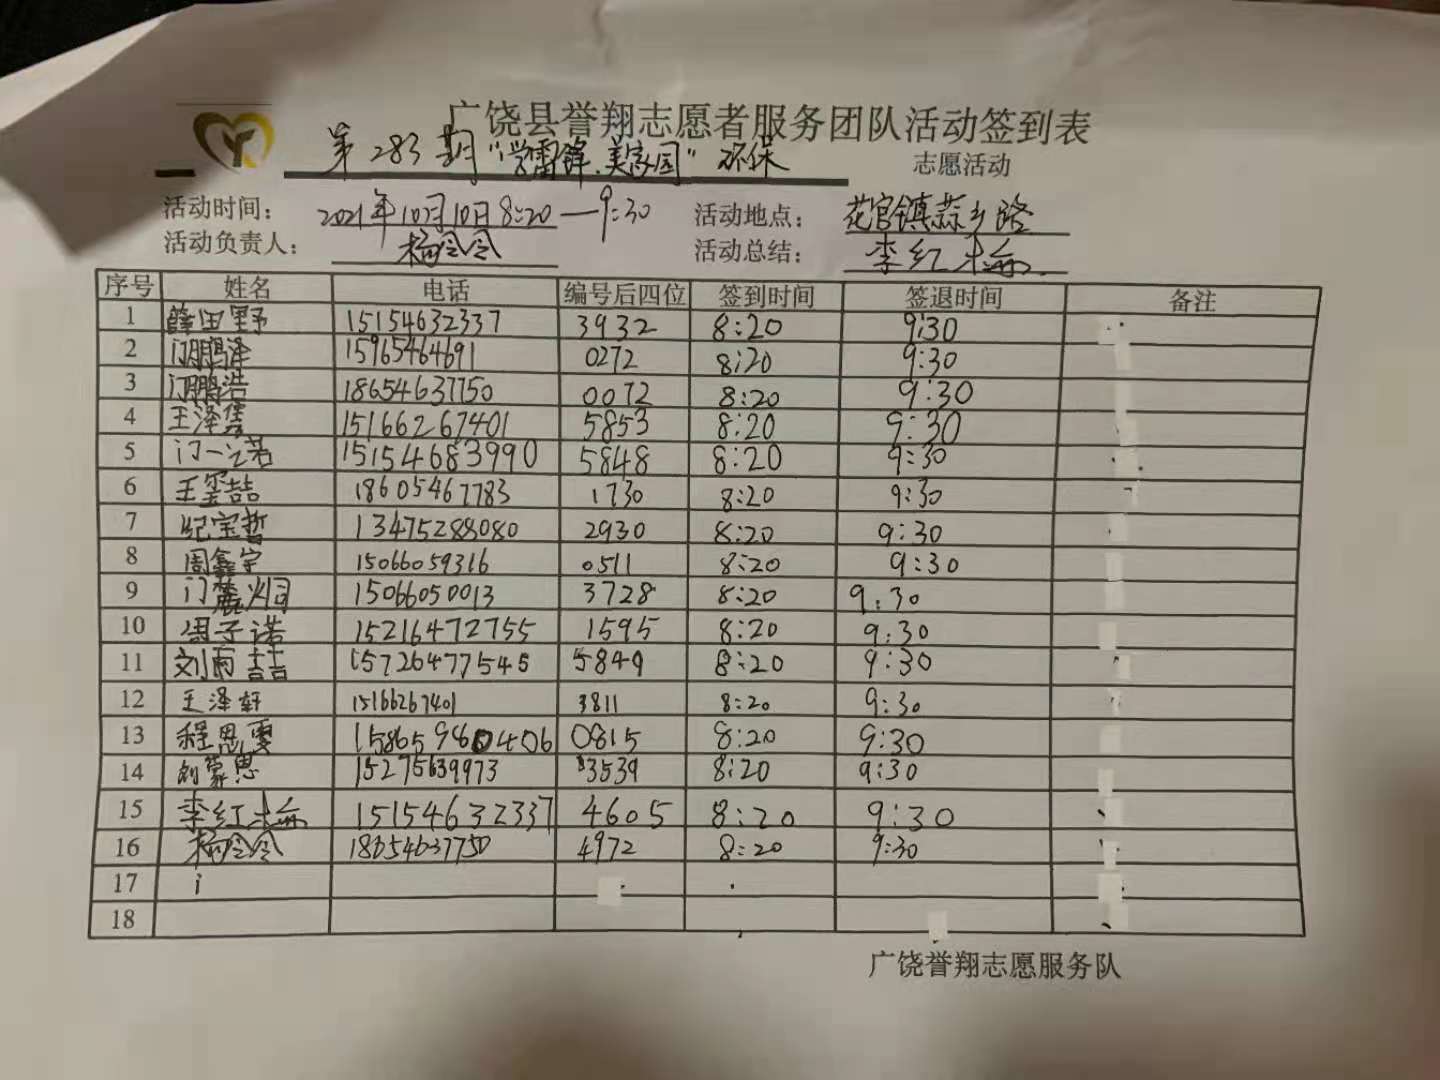 广饶县誉翔志愿者服务团队活动签到表
第283期"学雷锋.美家园"环保 志愿活动
活动时间: 2021年10月10日8:20—9:30 活动地点: 花官镇蒜乡路
活动负责人: 杨令令 活动总结: 李红梅
序号 姓名 电话 编号后四位 签到时间 签退时间 备注
1 薛田野 15154632337 3932 8:20 9:30
2 门鹏泽 15965464691 0272 8:20 9:30
3 门鹏浩 18654637750 0072 8:20 9:30
4 王泽 15166267401 5853 8:20 9:30
5 门一诺 15154683990 5848 8:20 9:30
6 王玺喆 18605467783 1730 8:20 9:30
7 纪宝哲 13475288080 2930 8:20 9:30
8 周鑫宇 15066059316 0511 8:20 9:30
9 门麓炯 15066050013 3728 8:20 9:30
10 周子诺 15216472755 1595 8:20 9:30
11 刘雨喆 15726477545 5849 8:20 9:30
12 王泽轩 15166267401 3811 8:20 9:30
13 程思雯 15865980406 0815 8:20 9:30
14 刘蒙思 15275639973 3539 8:20 9:30
15 李红梅 15154632337 4605 8:20 9:30
16 杨令令 18654637750 4972 8:20 9:30
17
18
广饶誉翔志愿服务队